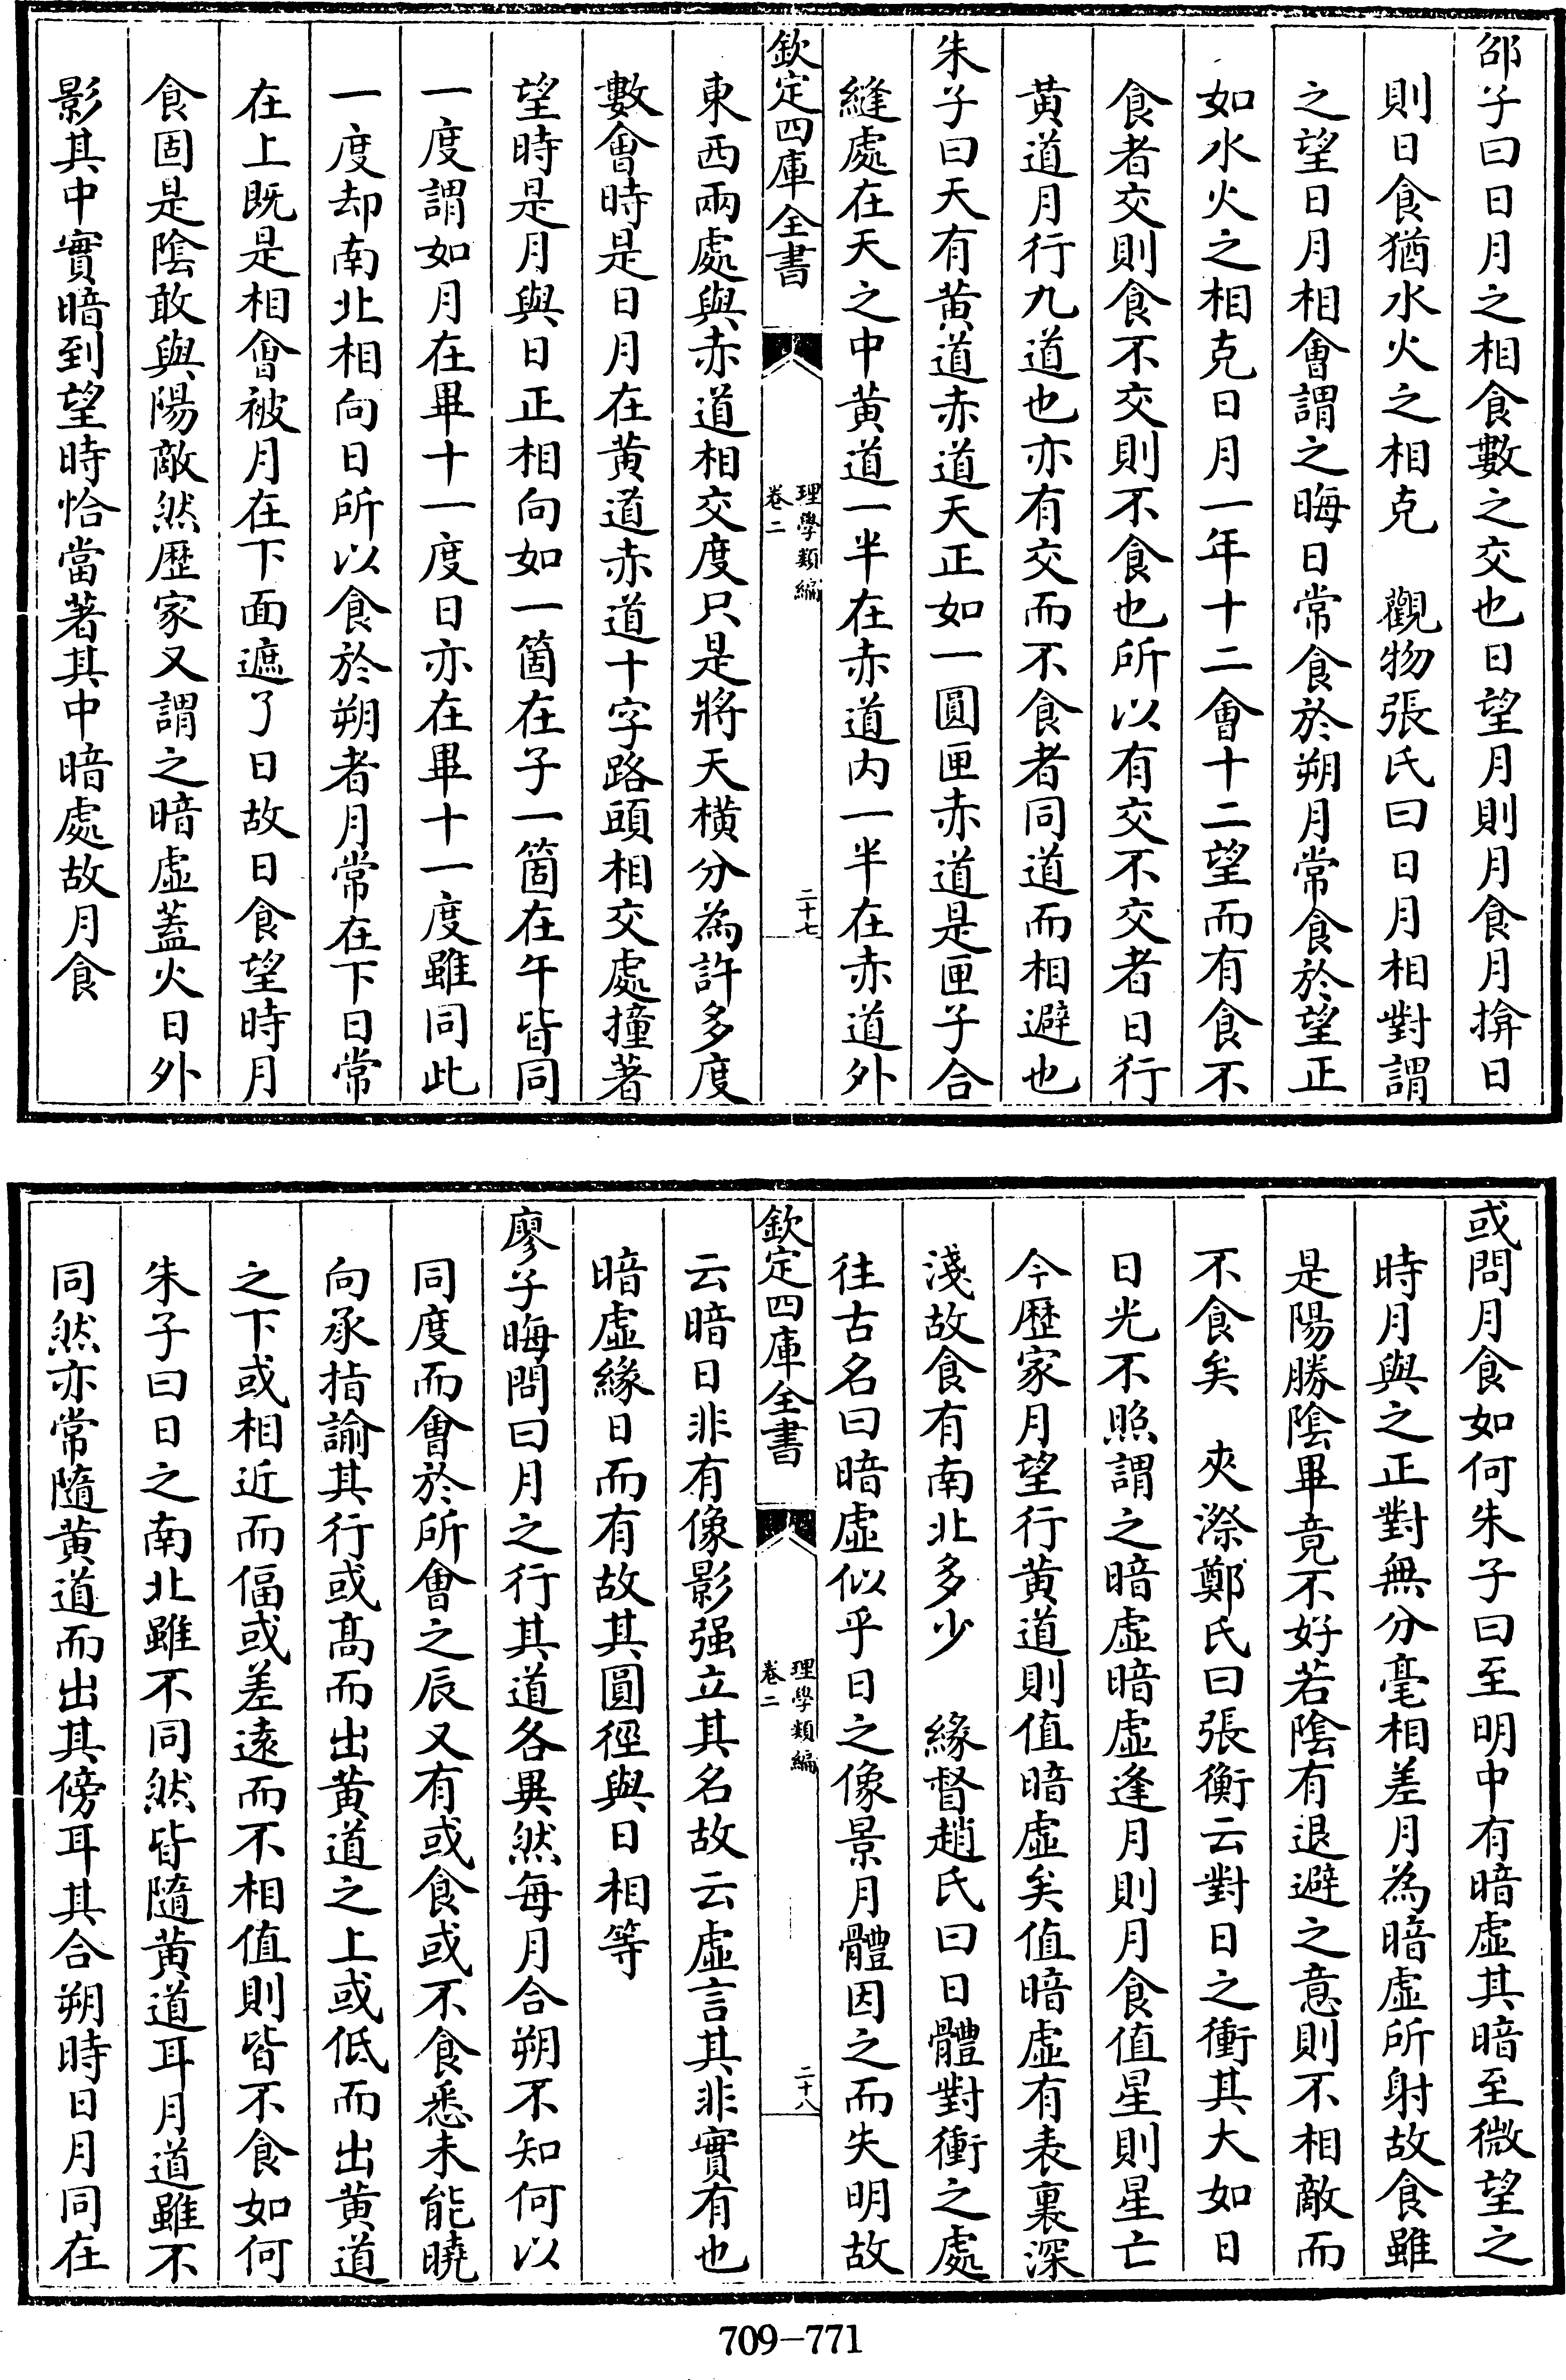 邵子曰日月之相食數之交也日望月則月食月揜日
則日食猶水火之相克　觀物張氏曰日月相對謂
之望日月相會謂之晦日常食於朔月常食於望正
如水火之相克日月一年十二會十二望而有食不
食者交則食不交則不食也所以有交不交者日行
黃道月行九道也亦有交而不食者同道而相避也
朱子曰天有黃道赤道天正如一圓匣赤道是匣子合
縫處在天之中黃道一半在赤道内一半在赤道外
欽定四庫全書
理學類編
卷二
二十七
東西兩處與赤道相交度只是將天橫分為許多度
數會時是日月在黃道赤道十字路頭相交處撞著
望時是月與日正相向如一箇在子一箇在午皆同
一度謂如月在畢十一度日亦在畢十一度雖同此
一度却南北相向日所以食於朔者月常在下日常
在上既是相會被月在下面遮了日故日食望時月
食固是陰敢與陽敵然歴家又謂之暗虛蓋火日外
影其中實暗到望時恰當著其中暗處故月食
或問月食如何朱子曰至明中有暗虛其暗至微望之
時月與之正對無分毫相差月為暗虛所射故食雖
是陽勝陰畢竟不好若陰有退避之意則不相敵而
不食矣　夾漈鄭氏曰張衡云對日之衝其大如日
日光不照謂之暗虛暗虛逢月則月食值星則星亡
今歴家月望行黃道則值暗虛矣值暗虛有表裏深
淺故食有南北多少　緣督趙氏曰日體對衝之處
往古名曰暗虛似乎日之像景月體因之而失明故
欽定四庫全書
理學類編
卷二
二十八
云暗日非有像影强立其名故云虛言其非實有也
暗虛緣日而有故其圓徑與日相等
廖子晦問曰月之行其道各異然每月合朔不知何以
同度而會於所會之辰又有或食或不食悉未能曉
向承指諭其行或高而出黃道之上或低而出黃道
之下或相近而偪或差遠而不相值則皆不食如何
朱子曰日之南北雖不同然皆隨黃道耳月道雖不
同然亦常隨黃道而出其傍耳其合朔時日月同在
709-771